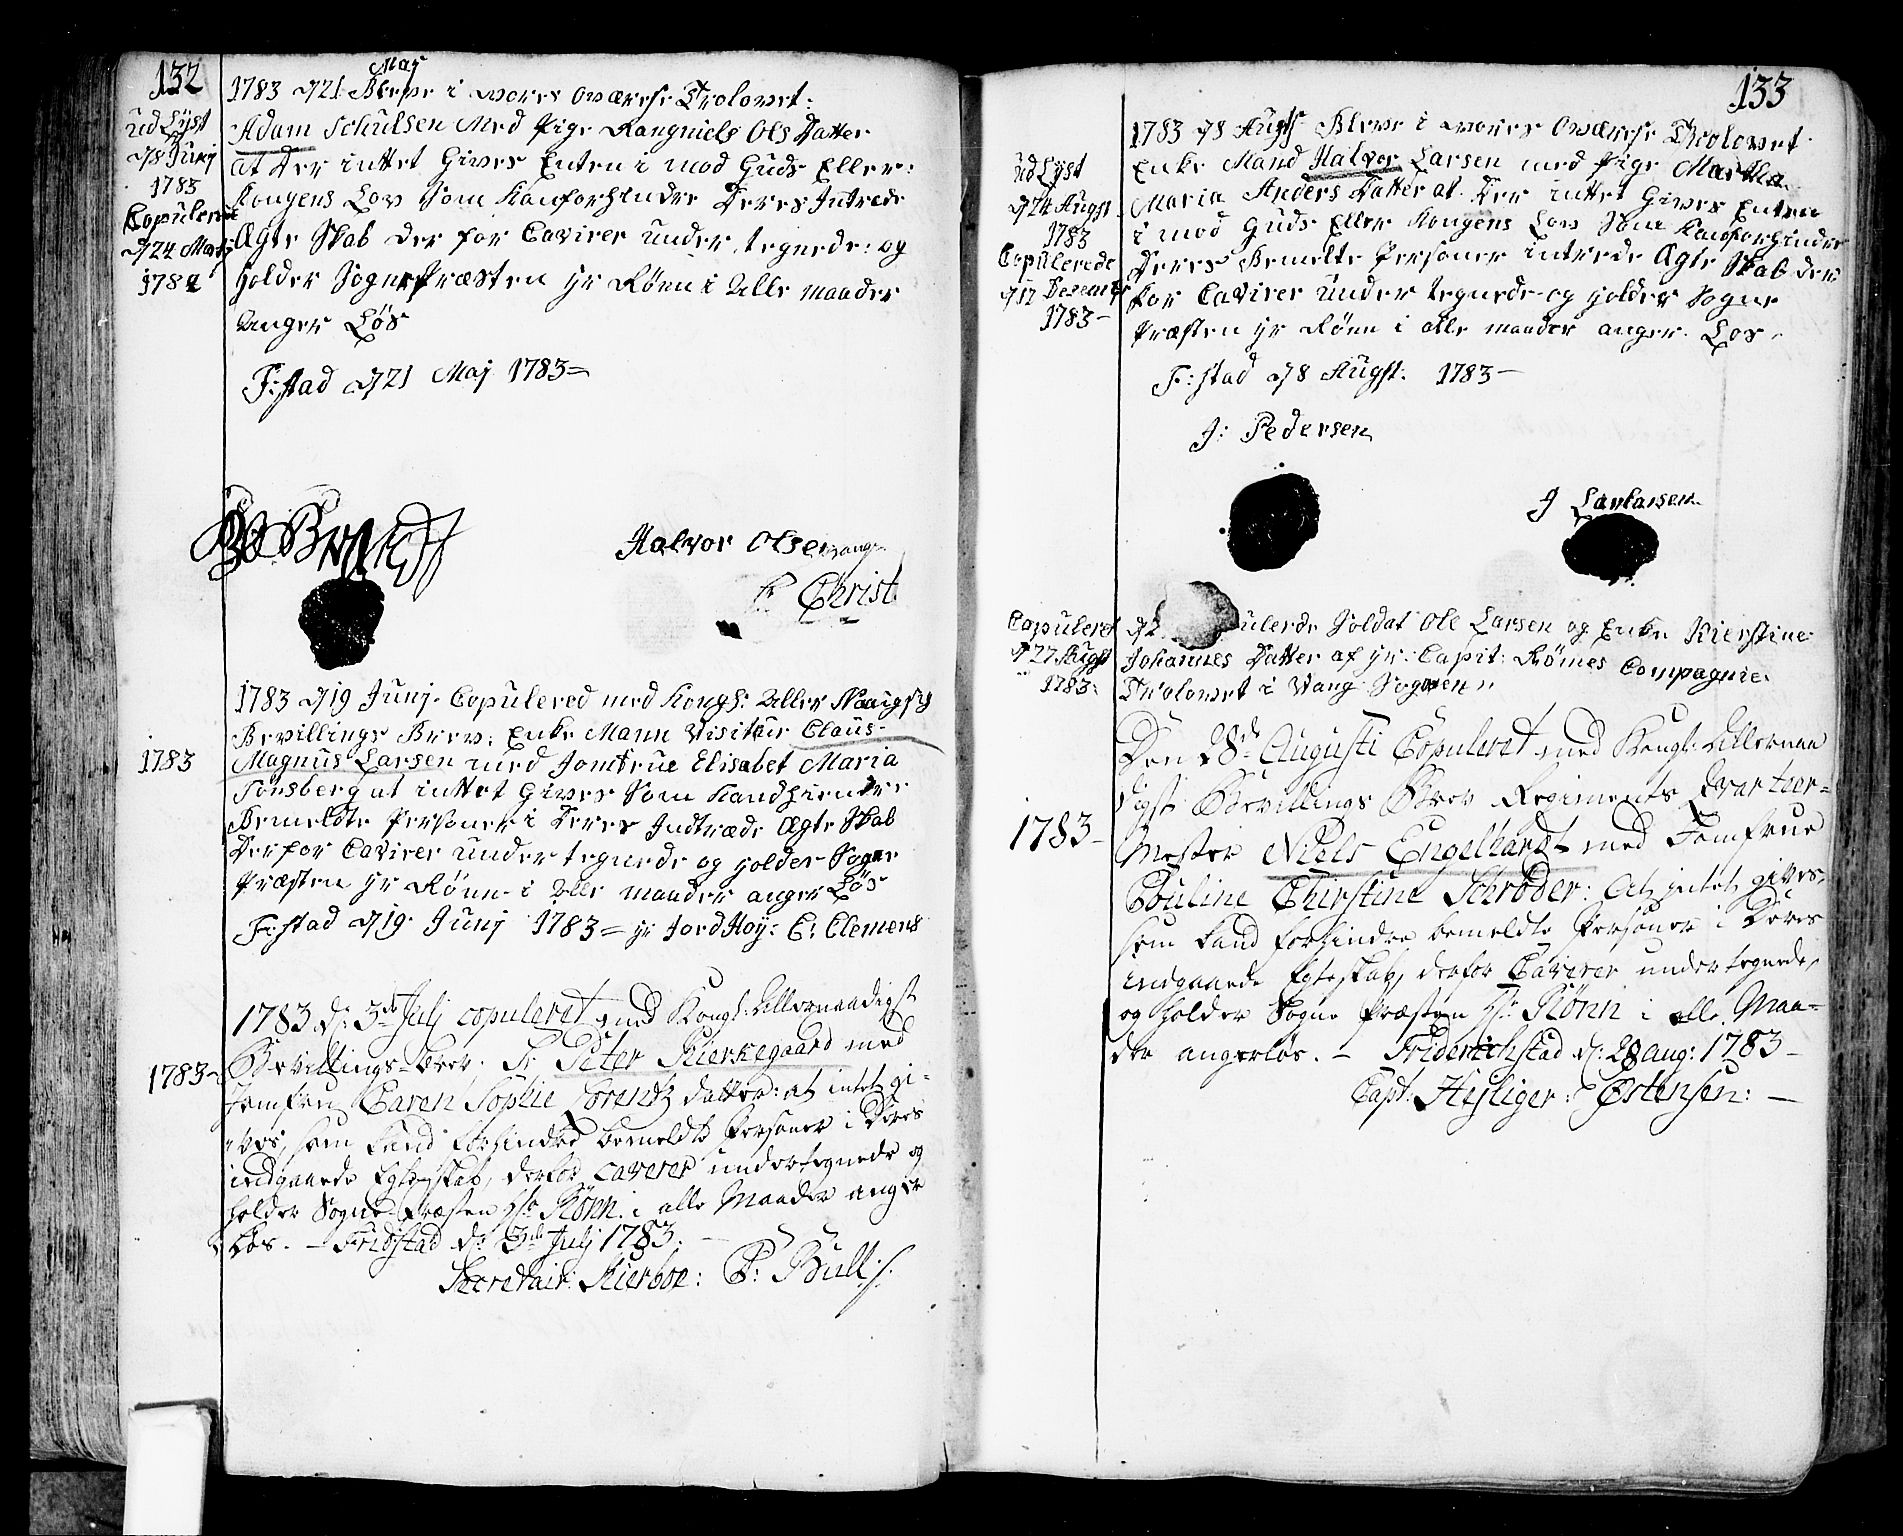 132
ud Lyst
d 8 Junj
1783
Copulerede
d 24 Martj
1784
Maj
1783 d 21 Bleve i vores Overværse Trolovet:
Adam Schulsen Med Pige Rangniels Ols Datter
at Der inttet Gives Enten i mod Guds Eller:
Kongens Lov Som Kanforhindre Deres Intrede
Ægte Skab der for Cavirer under tegnede: og
holder Sogne Præsten Hr Rønn i Alle maader
Anger Løs
F: stad d 21 Maj 1783 =
Halvor Olsen
Christ
1783 d 19 Junj. Copulered med Kongl: Aller Naadigste
Bevillings Brev: Enke Mann Visitør Claus
Magnus Larsen med Jomfrue Elisabet Maria
Torsberg at inttet Gives Som Kandhiendre
Bemeldte Personer i Deres Indtræde Ægte Skab
Derfor Cavirer under tegnede og holder Sogne
Præsten Hr Rønn i Alle maader anger Løs
F: stad d 19 Junj 1783 = Hr Jord Høy: C: Clemens
1783
1783 d: 3de Julj copuleret med Kongl: Allernaadigst
Bevillings-brev: Sr Peter Kierkegaard med
Jomfru Caren Sophie Lorentz datter: at intet gi-
ves, som kand forhindre bemeldte Personer i Deres
indgaaede Egteskab, derfor caverer undertegnede og
holder Sogne-Præsten Hr: Rønn i alle Maader anger
Løs. – Fridstad d: 3de Julj 1783.
Secretair Kierboe: P: Bull
1783
133
ud Lyst
d 24 Augst
1783
Copulerede
d 12 Desember
1783 –
1783 d 8 Augst Bleve i vores Overværse Trolovet
Enke Mand Halvor Larsen med Pige Martha
Maria Anders Datter at Der inttet Gives Enten
i mod Guds Eller Kongens Lov Som Kanforhindre
Deres Bemelte Personer intrede Ægte Skab der
for Cavirer under tegnede og holder Sogne
Præsten Hr Rønn i alle maader anger Løs
F: stad d 8 Augst. 1783 –
J: Pedersen
J Larlarsen
Copuleret
d 27 Augst
1783
Soldat Ole Larsen og Enke Kierstine
Johannes Datter af Hr. Capit: Rømes Compagnie
Trolovet i Vang Sognen
Den 28de Augusti Copuleret med Kongl: Allernaa
digst Bevillings Brev Regiments Qvarteer-
Mester Niels Engelhardt med Jomfrue
Pouline Christine Schrøder: At intet gives,
som kand forhindre bemeldte Personer i Deres
indgaaede Egteskab, derfor Caverer undertegnede,
og holder Sogne Præsten Hr: Rønn i alle Maa-
der angerløs. – Friderichstad d: 28 aug: 1783 –
Capt: Heyliger: Estensen: –
1783 –